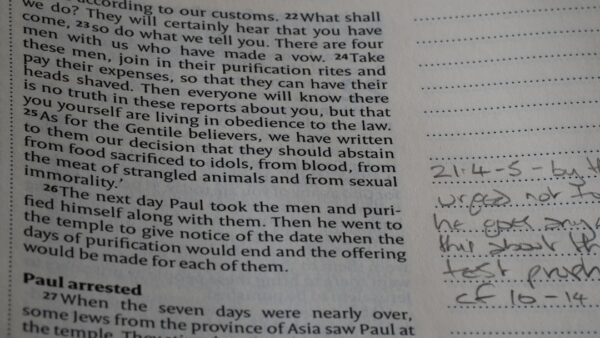 according to our customs. 22What shall
we do? They will certainly hear that you have
come, 23so do what we tell you. There are four
men with us who have made a vow. 24Take
these men, join in their purification rites and
pay their expenses, so that they can have their
heads shaved. Then everyone will know there
is no truth in these reports about you, but that
you yourself are living in obedience to the law.
25As for the Gentile believers, we have written
to them our decision that they should abstain
from food sacrificed to idols, from blood, from
the meat of strangled animals and from sexual
immorality.'
26The next day Paul took the men and puri-
fied himself along with them. Then he went to
the temple to give notice of the date when the
days of purification would end and the offering
would be made for each of them.
Paul arrested
27When the seven days were nearly over,
some Jews from the province of Asia saw Paul at
the temple.
21:4-5 - by th
urged not to
he goes any
this about th
test proph
cf 10-14